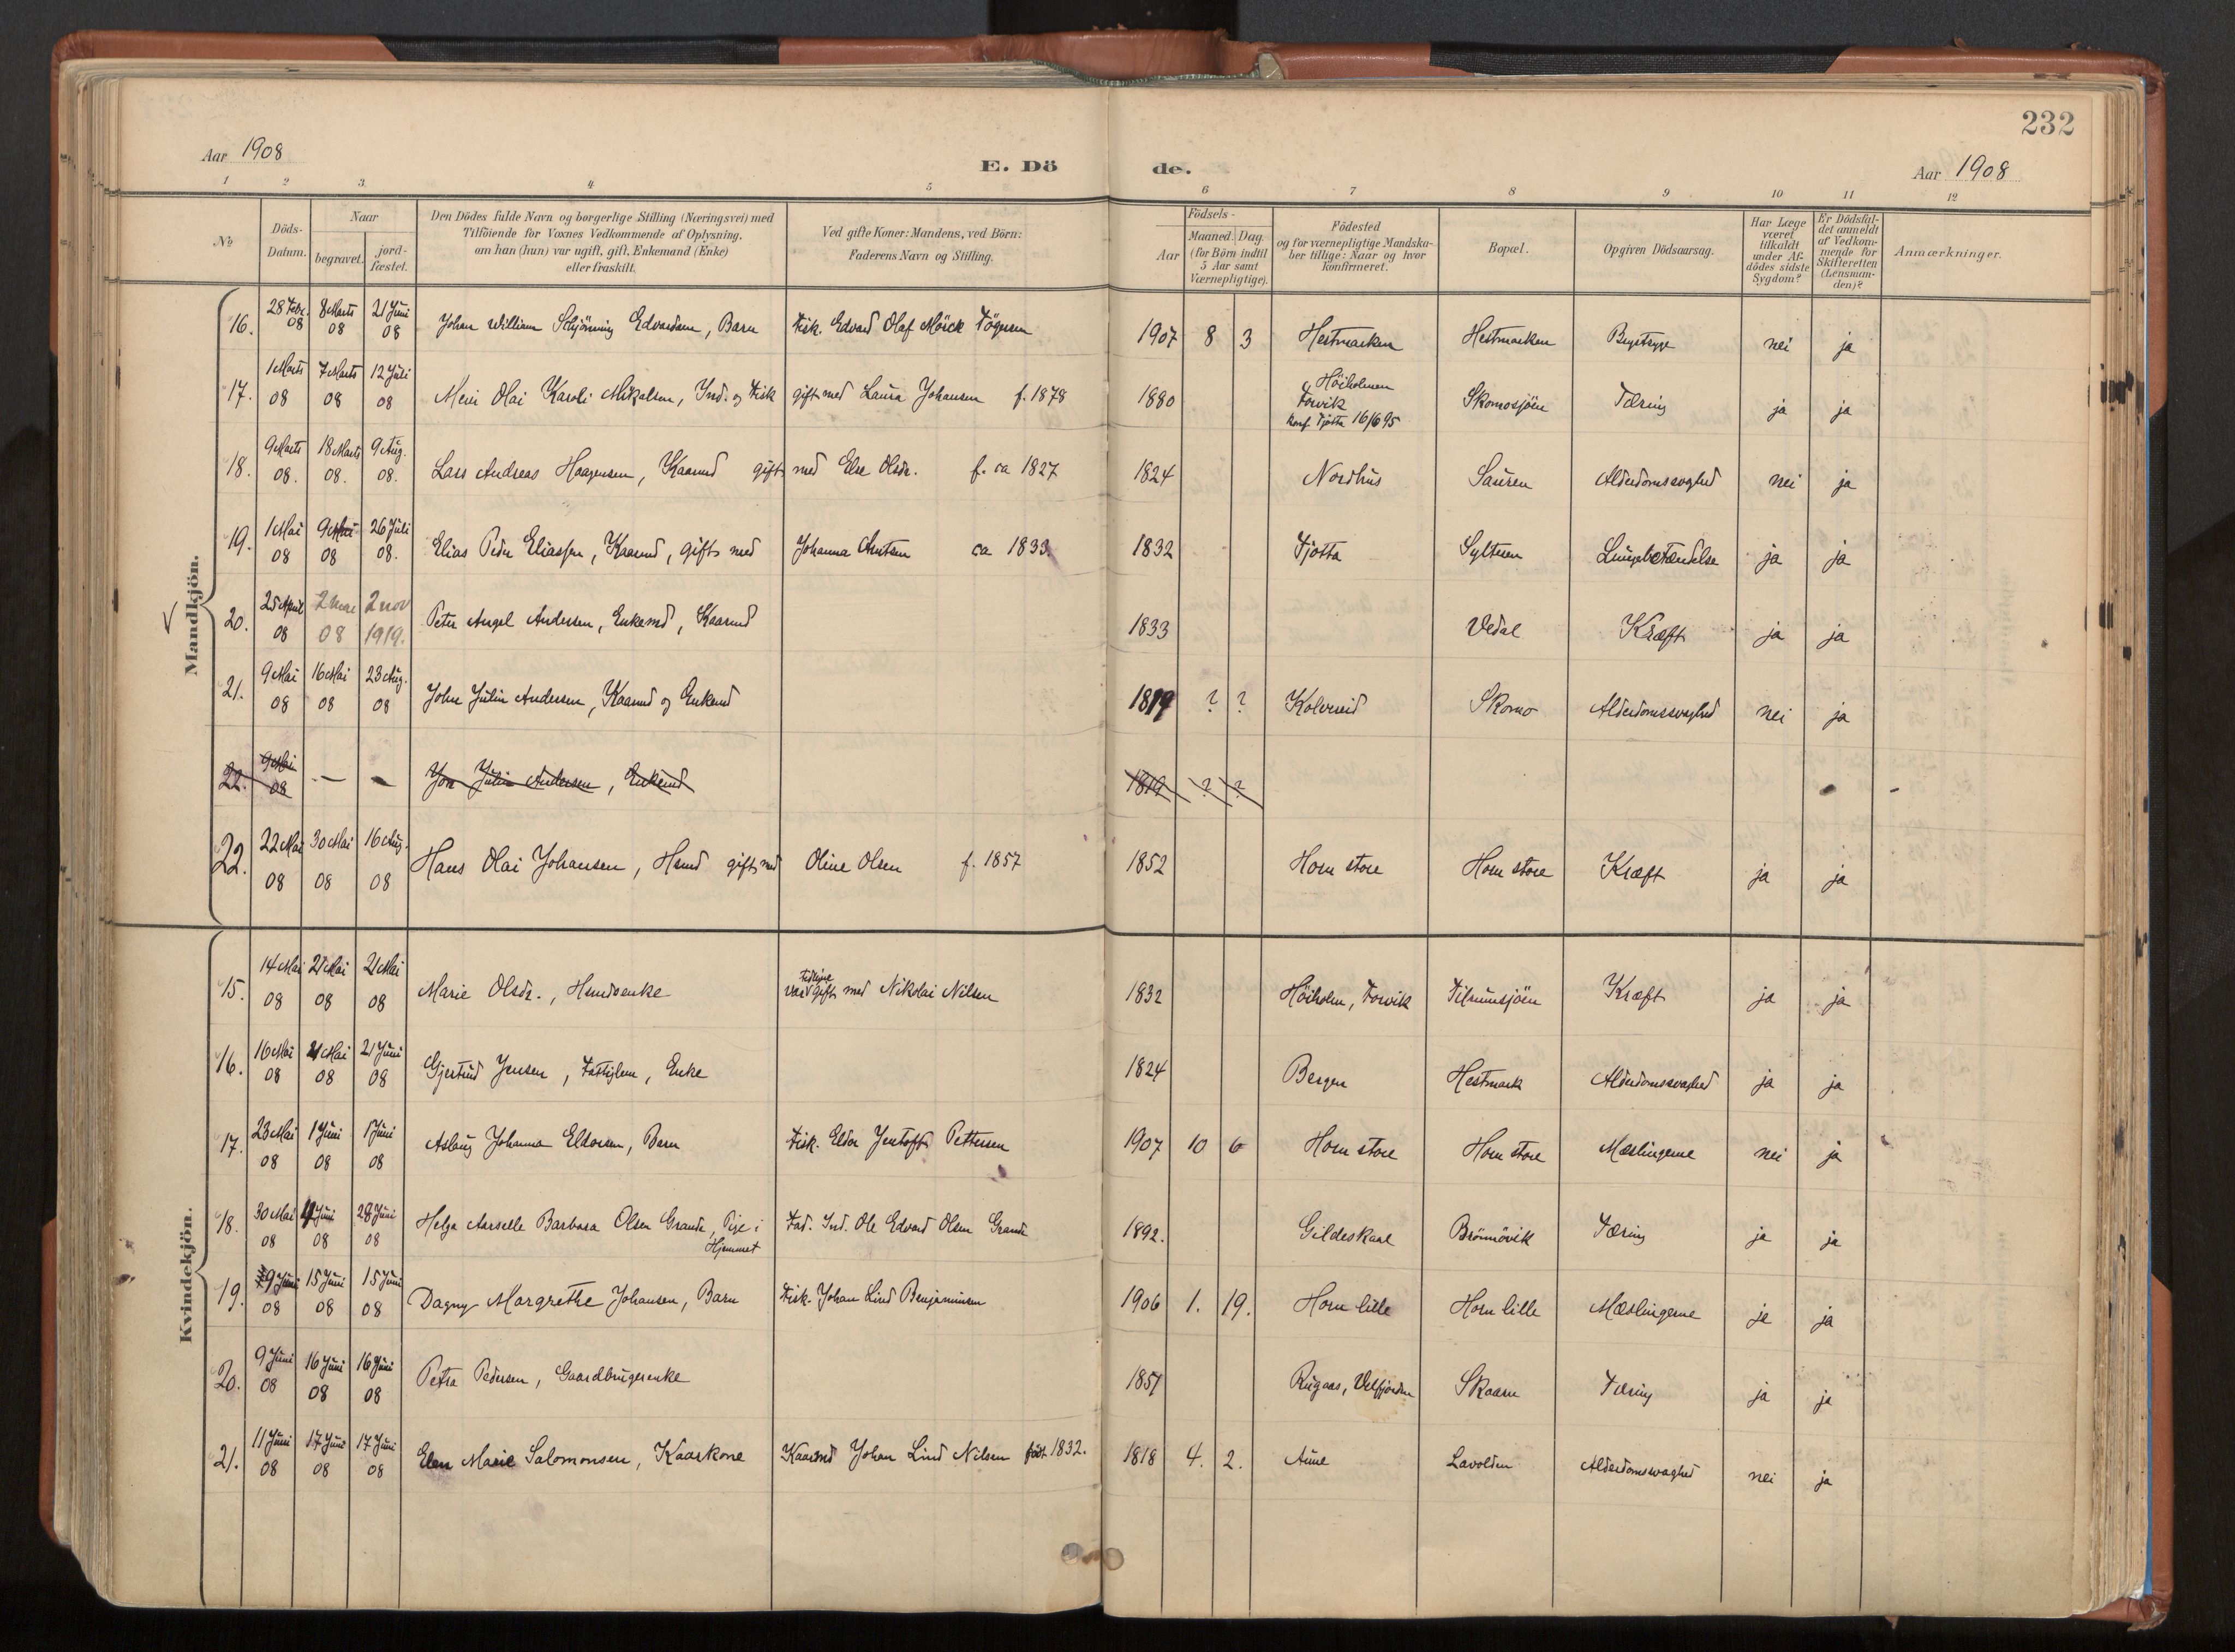 232
Aar 1908
E. Dö de.
Aar 1908
1 2 3. 4 5 6 7 8 9 10 11 12
№
Döds-
Datum.
Naar
begravet.
jord-
fæstet.
Den Dödes fulde Navn og borgerlige Stilling (Næringsvei) med
Tilföiende for Voxnes Vedkommende af Oplysning.
om han (hun) var ugift, gift, Enkemand (Enke)
eller fraskilt.
Ved gifte Koner: Mandens, ved Börn:
Faderens Navn og Stilling.
Födsels-
Aar
Maaned. Dag.
(for Börn indtil
5 Aar samt
Værnepligtige).
Födested
og for værnepligtige Mandska-
ber tillige: Naar og hvor
konfirmeret.
Bopæl.
Opgiven Dödsaarsag.
Har Læge
været
tilkaldt
under Af-
dödes sidste
Sygdom?
Er Dödsfal-
det anmeldt
af Vedkom-
mende for
Skifteretten
(Lensman-
den)?
Anmærkninger.
Mandkjön.
16. 28 Febr. 08 8 Marts 08 21 Juni 08 Johan William Schjönning Edvardsen, Barn Fisk. Edvard Olaf Mörck 1907 8 3 Hestmarken Hestmarken Brystsyge nei ja
17. 1 Marts 08 7 Marts 08 12 Juli 08 Meier Olai Karoli Mikalsen, Ind. og Fisk gift med Laura Johansen f. 1878 1880 Höiholmen Forvik konf. Tjötta 16/6 95 Skomosjöen Tæring ja ja
18. 9 Marts 08. 18 Marts 08. 9 Aug. 08. Lars Andreas Haagensen, Kaarmd gift med Else Olsdr. f. ca 1827 1824 Nordhus Sauren Alderdomssvaghed nei ja
19. 1 Mai 08 9 Mai 08 26 Juli 08. Elias Peder Eliassen, Kaarmd, gift med Johanna Arntsen ca 1833. 1832 Tjötta Sylteren Lungebetændelse ja ja
20. 25 April 08 2 mai 08 2 nov 1919. Peter Angel Andersen, Enkemd, Kaarmd 1833 Vedal Kræft ja ja
21. 9 Mai 08 16 Mai 08 23 Aug. 08 John Julin Andersen, Kaarmd og Enkemd 1819 ? ? Kolvereid Skomo Alderdomssvaghed nei ja
22. 9 Mai 08 — — Jon Julin Andersen, Enkemd 1819 ? ?
22. 22 Mai 08 30 Mai 08 16 Aug. 08 Hans Olai Johansen, Hsmd gift med Oline Olsen f. 1857 1852 Horn store Horn store Kræft ja ja
Kvindekjön.
15. 14 Mai 08 21 Mai 08 21 Mai 08 Marie Olsdr., Hsmdsenke var tidligere gift med Nikolai Nilsen 1832 Höiholm, Forvik Tilremsjöen Kræft ja ja
16. 16 Mai 08 21 Mai 08 21 Juni 08 Gjertrud Jensen, Fattiglem, Enke 1824 Bergen Hestmark Alderdomssvaghed ja ja
17. 23 Mai 08 1 Juni 08 1 Juni 08 Aslaug Johanna Eldorsen, Barn Fisk. Eldor Jentoft Pettersen 1907 10 6 Horn store Horn store Mæslingerne nei ja
18. 30 Mai 08 4 Juni 08 28 Juni 08 Helga Barbara Olsen Grande, Pige i Hjemmet Fad. Ind. Ole Edvard Olsen Grande 1892. Gildeskaal Brönnövik Tæring ja ja
19. 9 Juni 08 15 Juni 08 15 Juni 08 Dagny Margrethe Johansen, Barn Fisk. Johan Lind Benjaminsen 1906 1. 19. Horn lille Horn lille Mæslingerne ja ja
20. 9 Juni 08 16 Juni 08 16 Juni 08 Petra Pedersen, Gaardbrugerenke 1851 Rugaas, Velfjorden Skaaren Tæring ja ja
21. 11 Juni 08 17 Juni 08 17 Juni 08 Elen Marie Salomonsen, Kaarkone Kaarmd Johan Lind Nilsen födt 1832. 1818 4. 2. Aune Lavolden Alderdomssvaghed nei ja